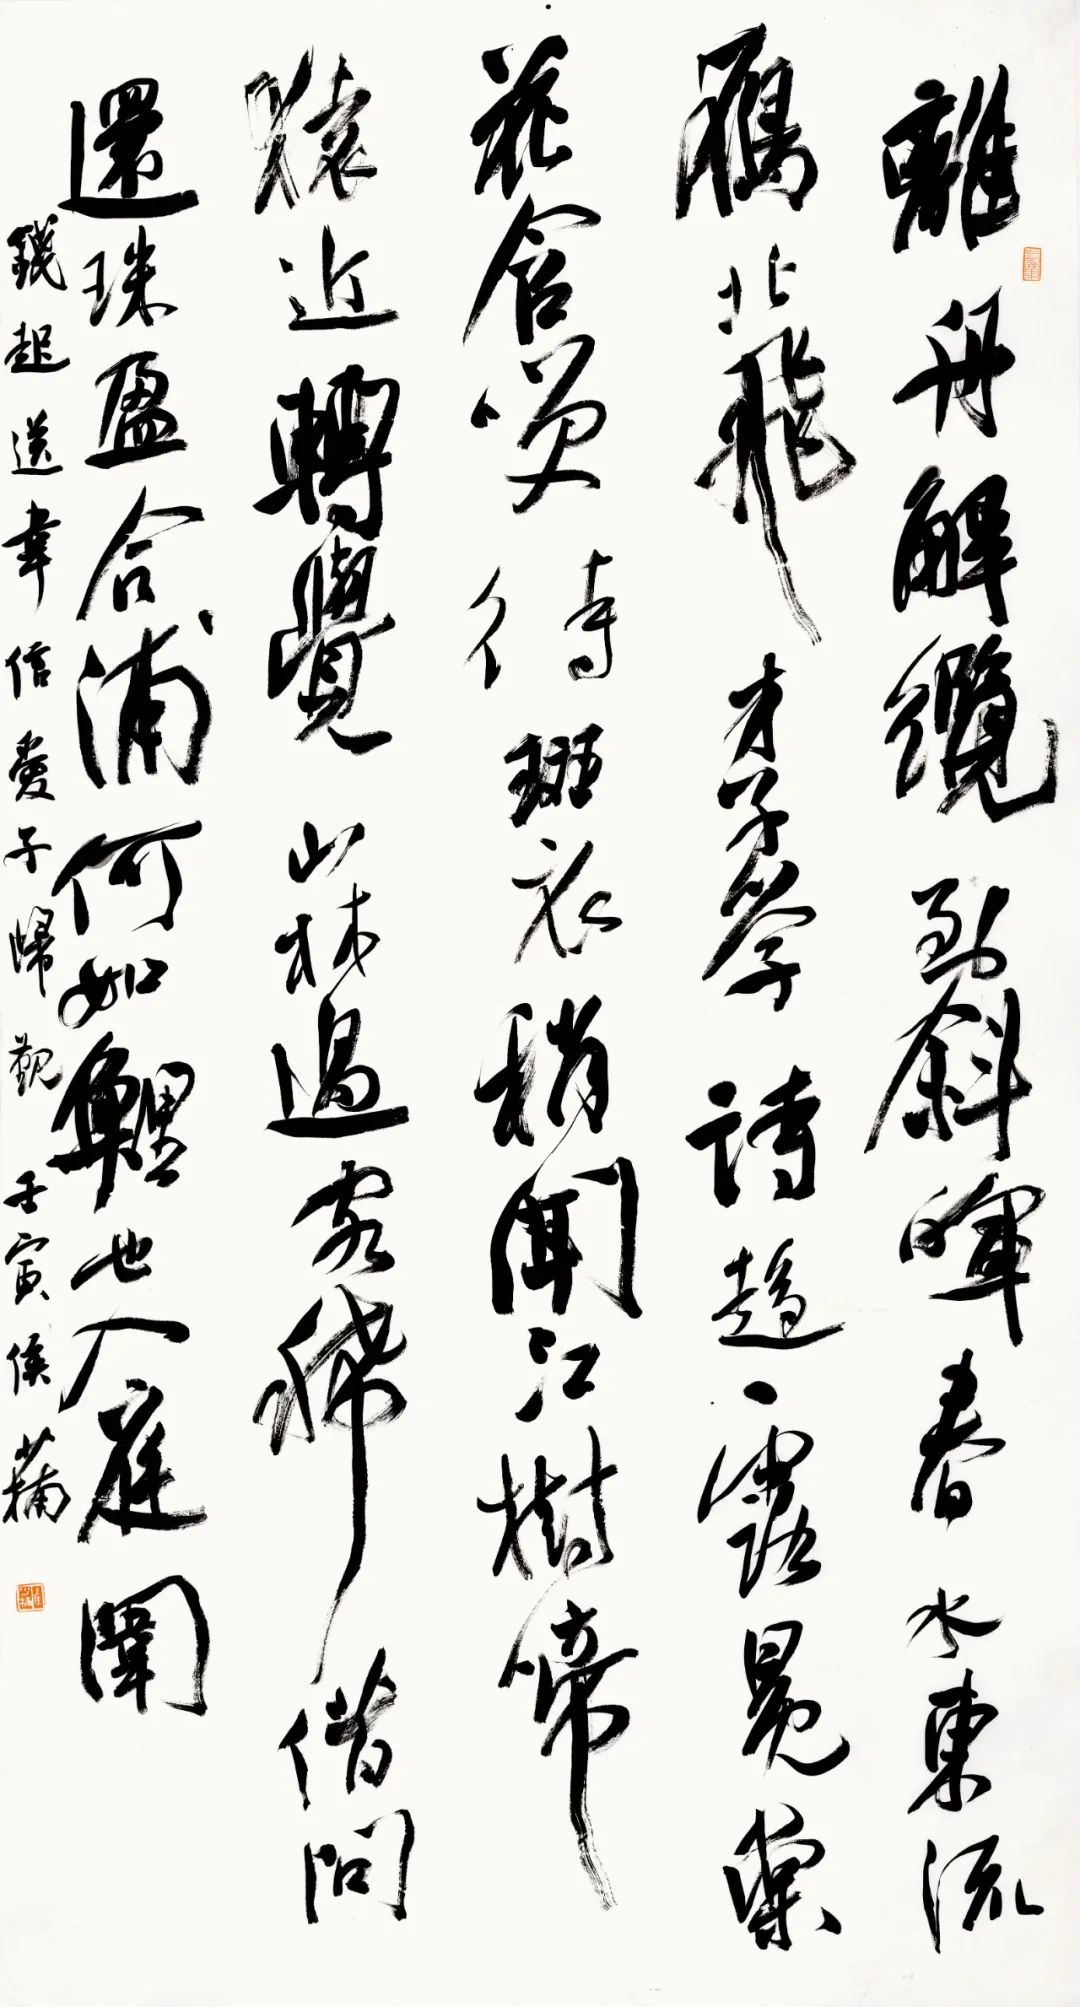 離舟解纜到斜暉春水東流
鴈北飛才子學詩趨露冕棠
花含咲待斑衣稍聞江樹啼
猿近轉覺山林過客稀借問
還珠盈合浦何如鯉也入庭闈
錢起送韋信愛子歸覲 壬寅侯少楠